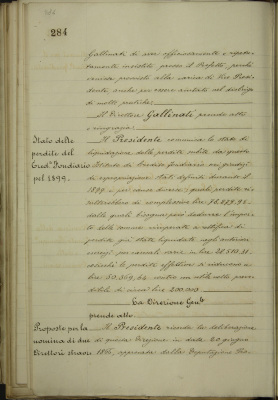 284
Gallinati di aver officiosamente e ripeta-
tamente insistito presso il Prefetto, perchè
venisse provveduto alla carica di Vice Presi-
dente, anche per essere aiutato nel disbrigo
di molte pratiche.
Il Direttore Gallinati prende atto e
ringrazia.
Stato delle
perdite del
Cred.° Fondiario
pel 1899.
Il Presidente comunica lo stato di
liquidazione delle perdite subite da questa
Azienda di Credito Fondiario nei giudizi
di espropriazione stati definiti durante il
1899 e per cause diverse; quali perdite ri-
sulterebbero di complessive lire
dalle quali bisogna però dedurre l'impor-
to delle somme ricuperate a rettifica di
perdite già state liquidate negli esercizi
cosicchè le perdite effettive si riducono a
lire 50.369,64 contro un utile netto preve-
dibile di circa lire 200.000
La Direzione Gen.le
prende atto
Proposte per la
nomina di due
Direttori straor.
Il Presidente ricorda la deliberazione
di questa Direzione in data 20 giugno
1896, approvata dalla Deputazione Pro-